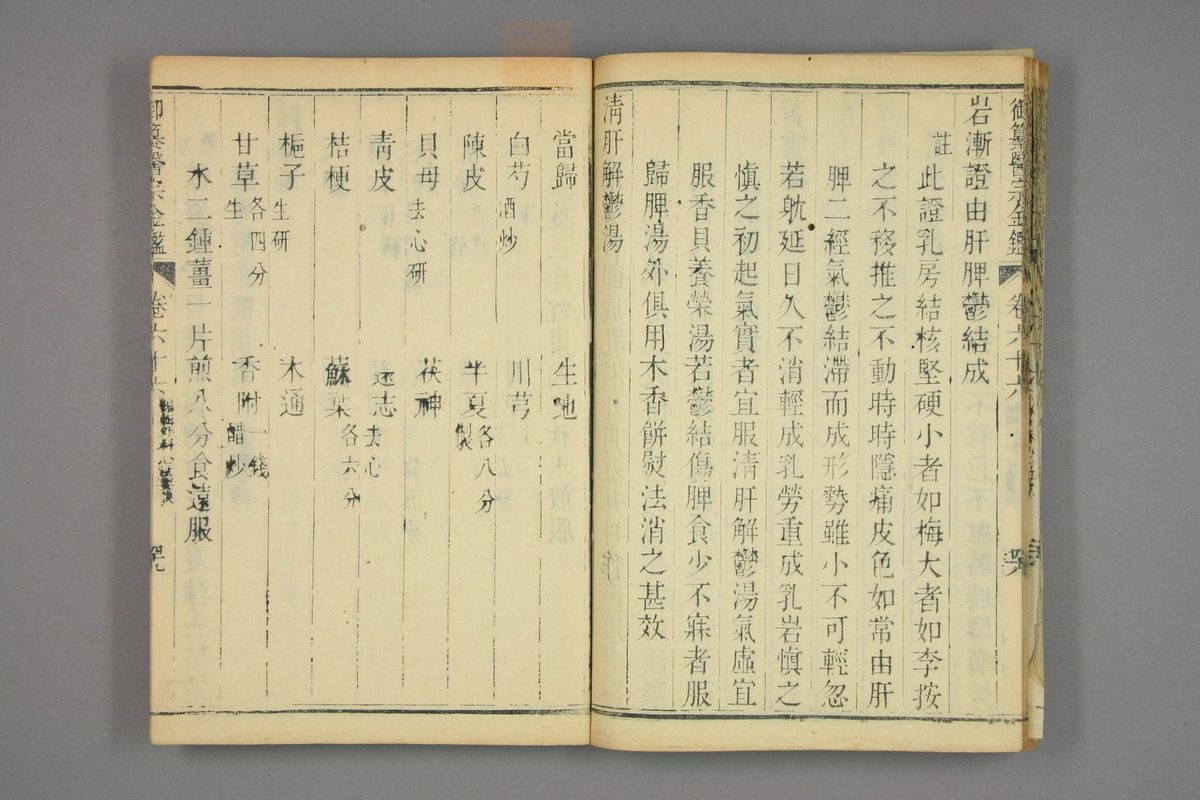 御纂醫宗金鑑 卷六十六
岩漸證由肝脾鬱結成
註 此證乳房結核堅硬小者如梅大者如李按
之不移推之不動時時隱痛皮色如常由肝
脾二經氣鬱結滯而成形勢雖小不可輕忽
若躭延日久不消輕成乳勞重成乳岩愼之
愼之初起氣實者宜服淸肝解鬱湯氣虛宜
服香貝養榮湯若鬱結傷脾食少不寐者服
歸脾湯外俱用木香餅熨法消之甚效
淸肝解鬱湯
當歸 生地
白芍酒炒 川芎
陳皮 半夏製各八分
貝母去心研 茯神
靑皮 遠志去心
桔梗 蘇葉各六分
梔子生研 木通
甘草生各四分 香附醋炒一錢
水二鍾薑一片煎八分食遠服
御纂醫宗金鑑 卷六十六 編輯外科心法要訣